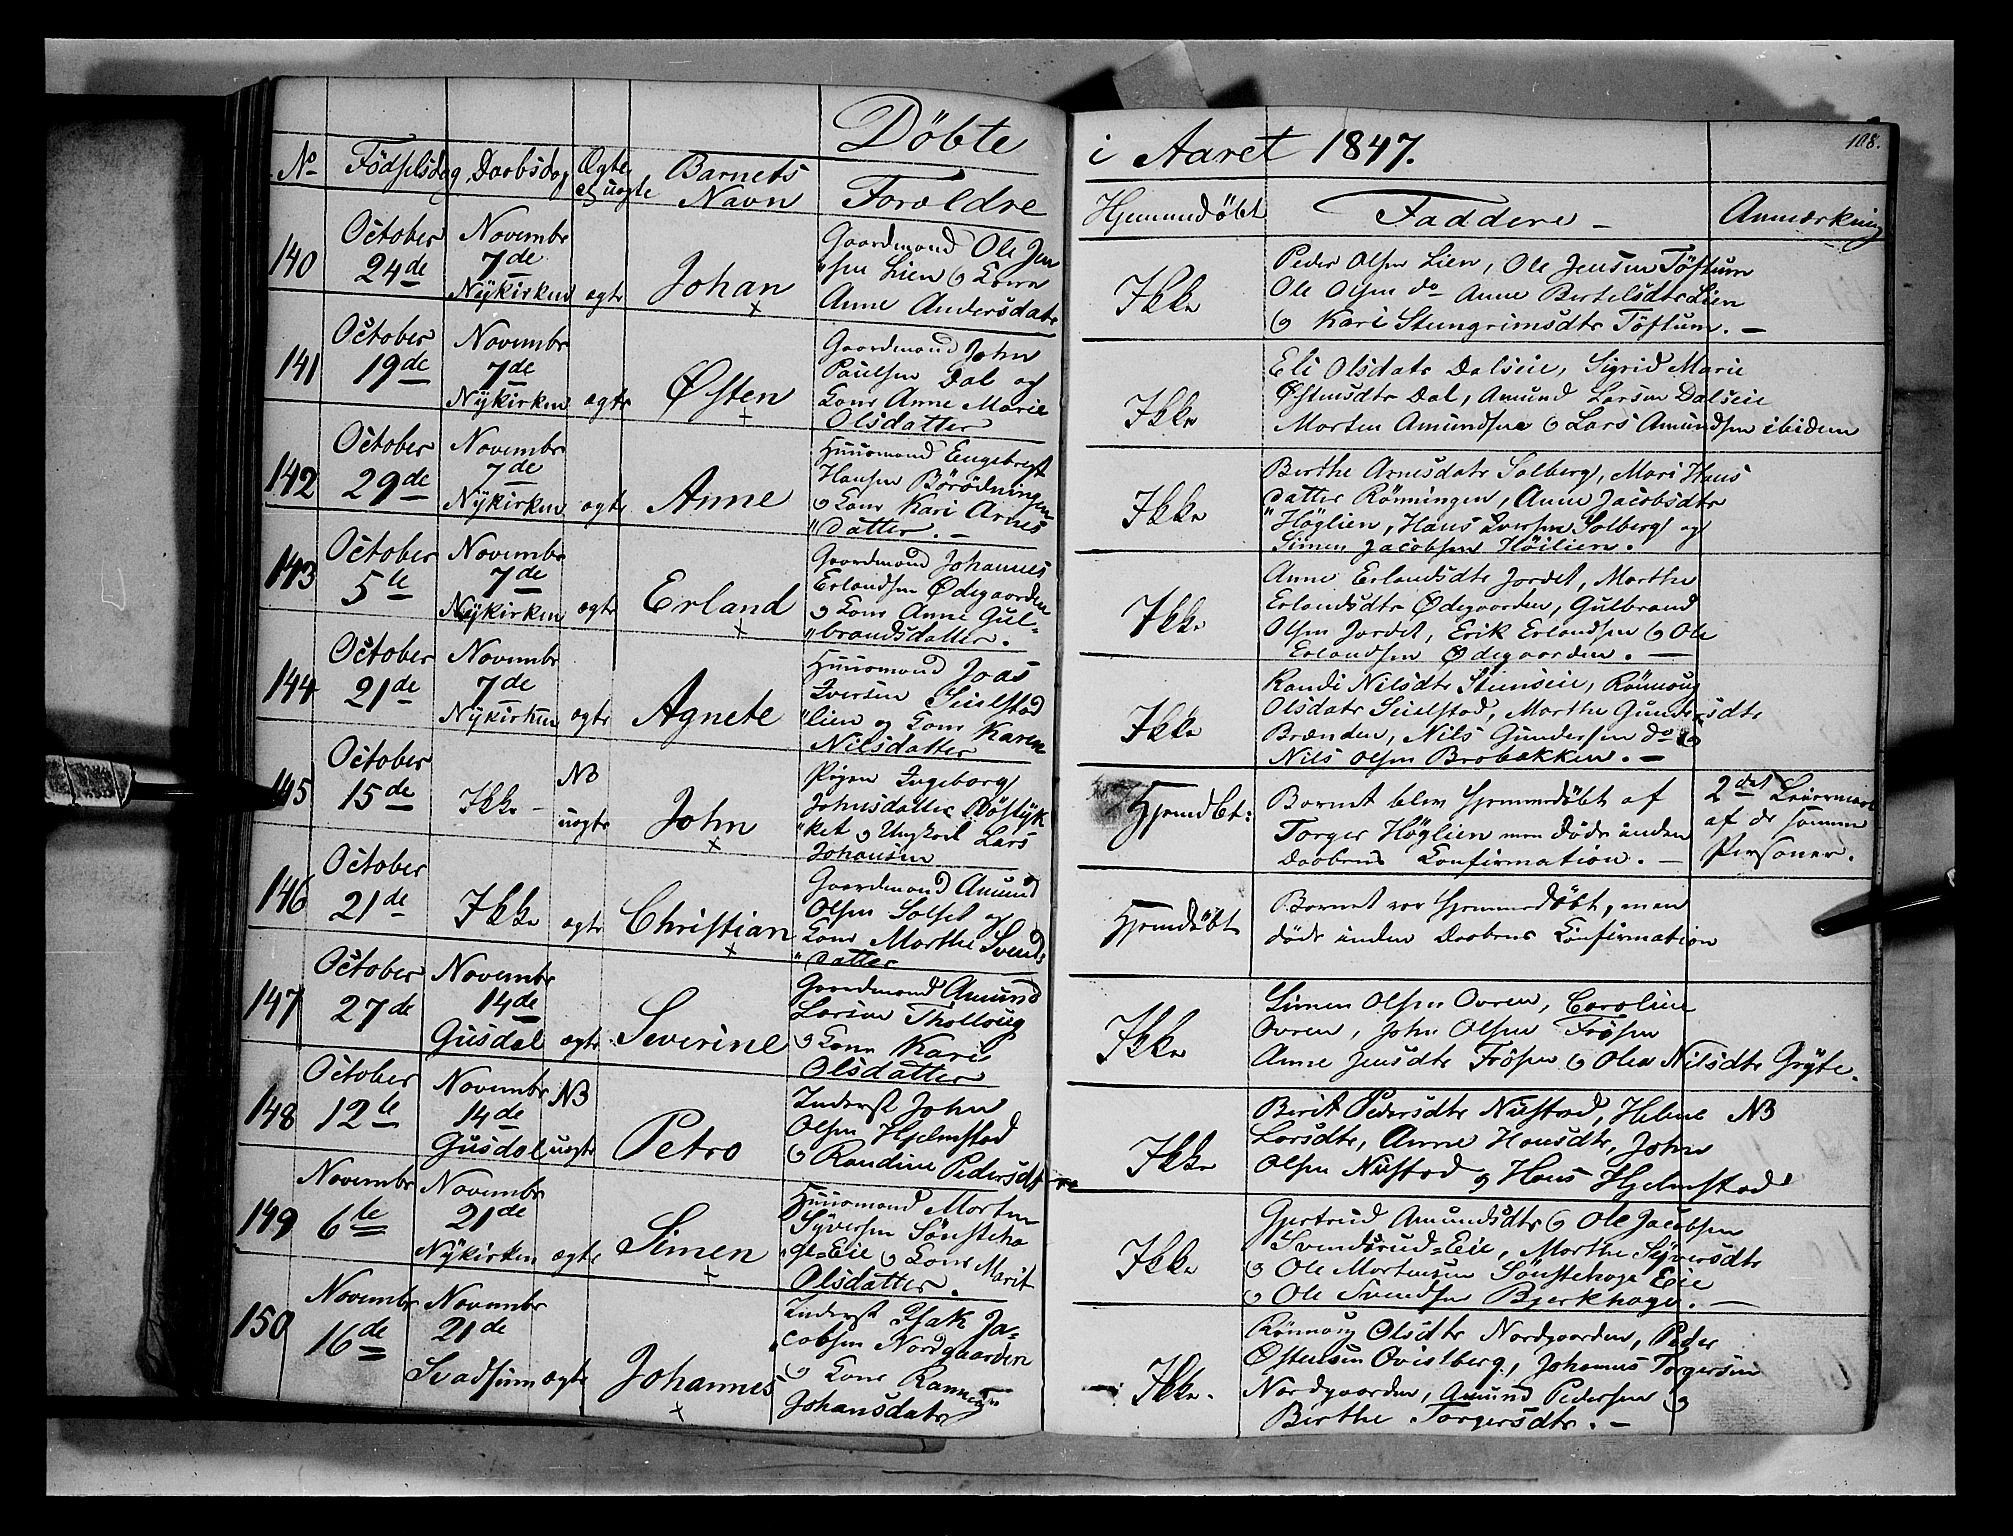 Döbte
i Aaret 1847.
108.
No Födselsdag Daabsdag Ægte el. uægte Barnets Navn Forældre
Hjemmedöbt Faddere Anmærkning
140 October 24de
Novembr 7de Nykirken
ægte
Johan
Gaardmand Ole Jen
"sen Lien og Kone
Anne Andersdatr
Ikke
Peder Olsen Lien, Ole Jensen Töftum
Ole Olsen do Anne Bertelsdtr Lien
og Kari Stengrimsdtr Töftum. —
141 October 19de
Novembr 7de Nykirken
ægte
Østen
Gaardmand John
Paulsen Dal og
Kone Anne Marie
Olsdatter
Ikke
Eli Olsdatr Dalseie, Sigrid Marie
Østensdtr Dal, Amund Larsen Dalseie
Morten Amundsen og Lars Amundsen ibidem
142 October 29de
Novembr 7de Nykirken
ægte
Anne
Huusmand Engebregt
Hansen
og Kone Kari Arnes
"datter. —
Ikke
Berthe Arnesdatr Solberg, Mari Hans
datter Rönningen, Anne Jacobsdtr
"Höglien, Hans Iversen Solberg og
Simen Jacobsen Höilien.
143 October 5te
Novembr 7de Nykirken
ægte
Erland
Gaardmand Johannes
Erlandsen Ødegaarden
og Kone Anne Gul-
"brandsdatter.
Ikke
Anne Erlandsdtr Jordet, Marthe
Erlandsdtr Ødegaarden, Gulbrand
Olsen Jordet, Erik Erlandsen og Ole
Erlandsen Ødegaarden. —
144 October 21de
Novembr 7de Nykirken
ægte
Agnete
Huusmand Joas
Iversen Seielstad
"lien og Kone Karen
Nilsdatter
Ikke
Randi Nilsdtr Steinseie, Rönnoug
Olsdatr Seielstad, Marthe Gundersdtr
Brænden, Nils Gundersen do og
Nils Olsen Brobakken. —
145 October 15de
Ikke —
NB uægte
John
Pigen Ingeborg
Johnsdatter
"ket og Ungkarl Lars
Johansen
Hjemdbt:
Barnet blev hjemmedöbt af
Torger Höglien men döde inden
Daabens Confirmation. —
2det Leiermaal
af de samme
Personer.
146 October 21de
Ikke
ægte
Christian
Gaardmand Amund
Olsen Solset og
Kone Marthe Svends
"datter
Hjemdöbt
Barnet var hjemmedöbt, men
döde inden Daabens Confirmation
147 October 27de
Novembr 14de Gusdal
ægte
Severine
Gaardmand Amund
Larsen
og Kone Kari
Olsdatter
Ikke
Simen Olsen Ovren, Caroline
Ovren, John Olsen Frösen
Anne Jensdtr Frösen og Olea Nilsdtr Gryte.
148 October 12te
Novembr 14de Gusdal
NB uægte
Petro
Inderst John
Olsen Hjelmstad
og Randine Pedersdtr
Ikke
Berit Pedersdtr Nustad, Helene
Larsdtr, Anne Hansdtr, John
Olsen Nustad og Hans Hjelmstad
NB
149 Novembr 6te
Novembr 21de Nykirken
ægte
Simen
Huusmand Morten
Syversen Sönsteha
ge-Eie og Kone Marit
Olsdatter.
Ikke
Gjertrud Amundsdtr og Ole Jacobsen
Svendsrud-Eie, Marthe Syversdtr
og Ole Mortensen Sönstehage Eie
og Ole Svendsen Bjerkhage. —
150 Novembr 16de
Novembr 21de Svadsum
ægte
Johannes
Inderst Isak Ja-
cobsen Nordgaarden
og Kone
Johansdatr
Ikke.
Rönnoug Olsdtr Nordgaarden, Peder
Østensen Qvistberg, Johannes Torgersen
Nordgaarden, Amund Pedersen og
Berthe Torgersdtr. —